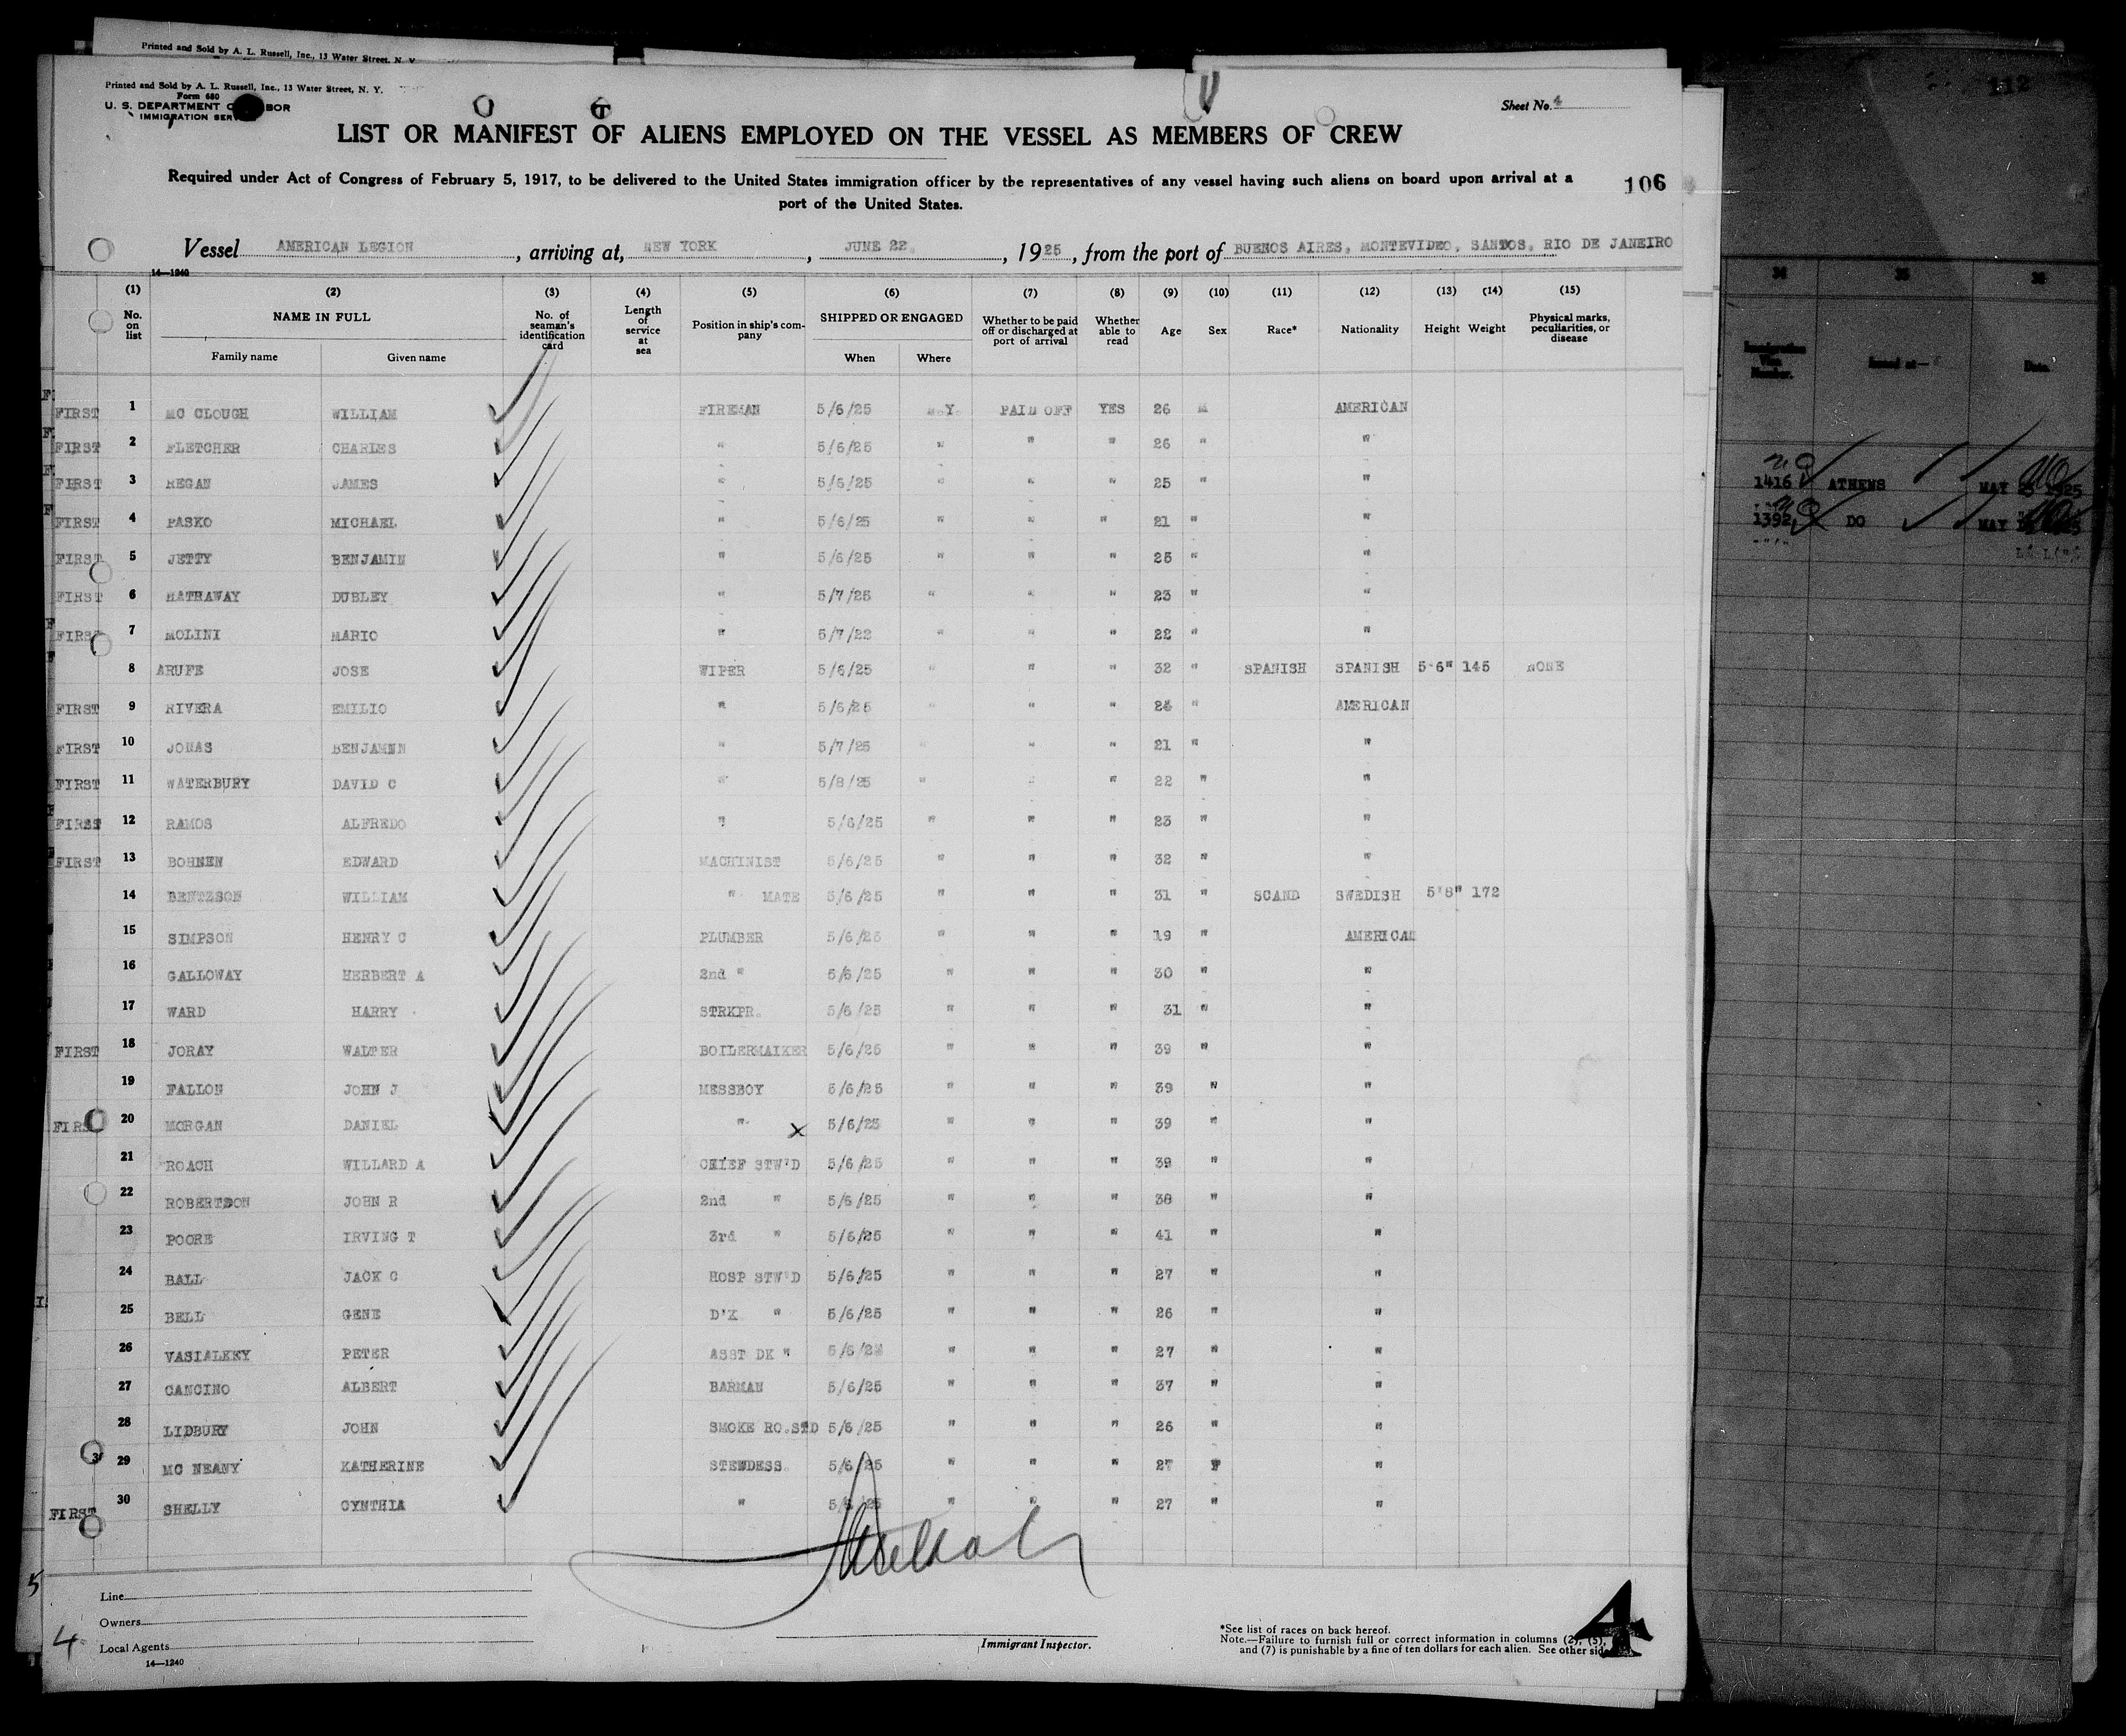 Printed and Sold by A. L. Russell, Inc., 13 Water Street, N. Y.
Printed and Sold by A. L. Russell, Inc., 13 Water Street, N. Y.
Form 680
U. S. DEPARTMENT BOR
IMMIGRATION
Sheet No. 4
112
LIST OR MANIFEST OF ALIENS EMPLOYED ON THE VESSEL AS MEMBERS OF CREW
Required under Act of Congress of February 5, 1917, to be delivered to the United States immigration officer by the representatives of any vessel having such aliens on board upon arrival at a
port of the United States.
106
Vessel AMERICAN LEGION, arriving at, NEW YORK, JUNE 22. , 1925, from the port of BUENOS AIRES, MONTEVIDEO, SANTOS, RIO DE JANEIRO
14—1240
(1) (2) (3) (4) (5) (6) (7) (8) (9) (10) (11) (12) (13) (14) (15)
No. on list NAME IN FULL Family name Given name No. of seaman's identification card Length of service at sea Position in ship's company SHIPPED OR ENGAGED When Where Whether to be paid off or discharged at port of arrival Whether able to read Age Sex Race* Nationality Height Weight Physical marks, peculiarities, or disease
FIRST 1 MC CLOUGH WILLIAM FIREMAN 5/6/25 N.Y. PAID OFF YES 26 M AMERICAN
FIRST 2 FLETCHER CHARLES " 5/6/25 " " " 26 " "
FIRST 3 REGAN JAMES " 5/6/25 " " " 25 " "
FIRST 4 PASKO MICHAEL " 5/6/25 " " " 21 " "
FIRST 5 JETTY BENJAMIN " 5/6/25 " " " 25 " "
FIRST 6 HATHAWAY DUBLEY " 5/7/25 " " " 23 " "
FIRST 7 MOLINI MARIO " 5/7/22 " " " 22 " "
8 ARUFE JOSE WIPER 5/6/25 " " " 32 " SPANISH SPANISH 5'6" 145 NONE
FIRST 9 RIVERA EMILIO " 5/6/25 " " " 24 " AMERICAN
FIRST 10 JONAS BENJAMNN " 5/7/25 " " " 21 " "
FIRST 11 WATERBURY DAVID C " 5/8/25 " " " 22 " "
FIRST 12 RAMOS ALFREDO " 5/6/25 " " " 23 " "
FIRST 13 BOHNEN EDWARD MACHINIST 5/6/25 " " " 32 " "
14 BENTZSON WILLIAM " MATE 5/6/25 " " " 31 " SCAND SWEDISH 5'8" 172
15 SIMPSON HENRY C PLUMBER 5/6/25 " " " 19 " AMERICAN
16 GALLOWAY HERBERT A 2nd " 5/6/25 " " " 30 " "
17 WARD HARRY STRKPR. 5/6/25 " " " 31 " "
FIRST 18 JORAY WALTER BOILERMAIKER 5/6/25 " " " 39 " "
19 FALLON JOHN J MESSBOY 5/6/25 " " " 39 " "
FIRS 20 MORGAN DANIEL " X 5/6/25 " " " 39 " "
21 ROACH WILLARD A CHIEF STW'D 5/6/25 " " " 39 " "
22 ROBERTSON JOHN R 2nd " 5/6/25 " " " 38 " "
23 POORE IRVING T 3rd " 5/6/25 " " " 41 " "
24 BALL JACK C HOSP STW'D 5/6/25 " " " 27 " "
25 BELL GENE D'K " 5/6/25 " " " 26 " "
26 VASIALKEY PETER ASST DK " 5/6/2 " " " 27 " "
27 CANCINO ALBERT BARMAN 5/6/25 " " " 37 " "
28 LIDBURY JOHN SMOKE RO.STD 5/6/25 " " " 26 " "
29 MC NEANY KATHERINE STEWDESS. 5/6/25 " " " 27 F "
FIRST 30 SHELLY CYNTHIA " 5/6/25 " " " 27 " "
34 35 36
Number. Issued at— Date.
1416 ATHENS MAY 1925
1392 DO MAY
5
4
Line
Owners
Local Agents
14—1240
Immigrant Inspector.
*See list of races on back hereof.
Note.—Failure to furnish full or correct information in columns (2), (5),
and (7) is punishable by a fine of ten dollars for each alien. See other side
4